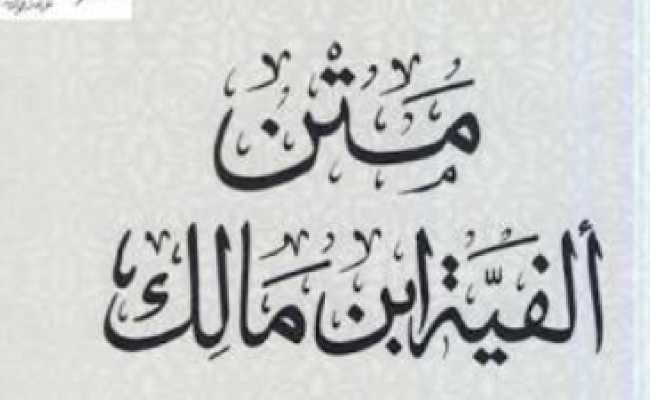 مَتْن
ألفيَّة ابن مَالِك